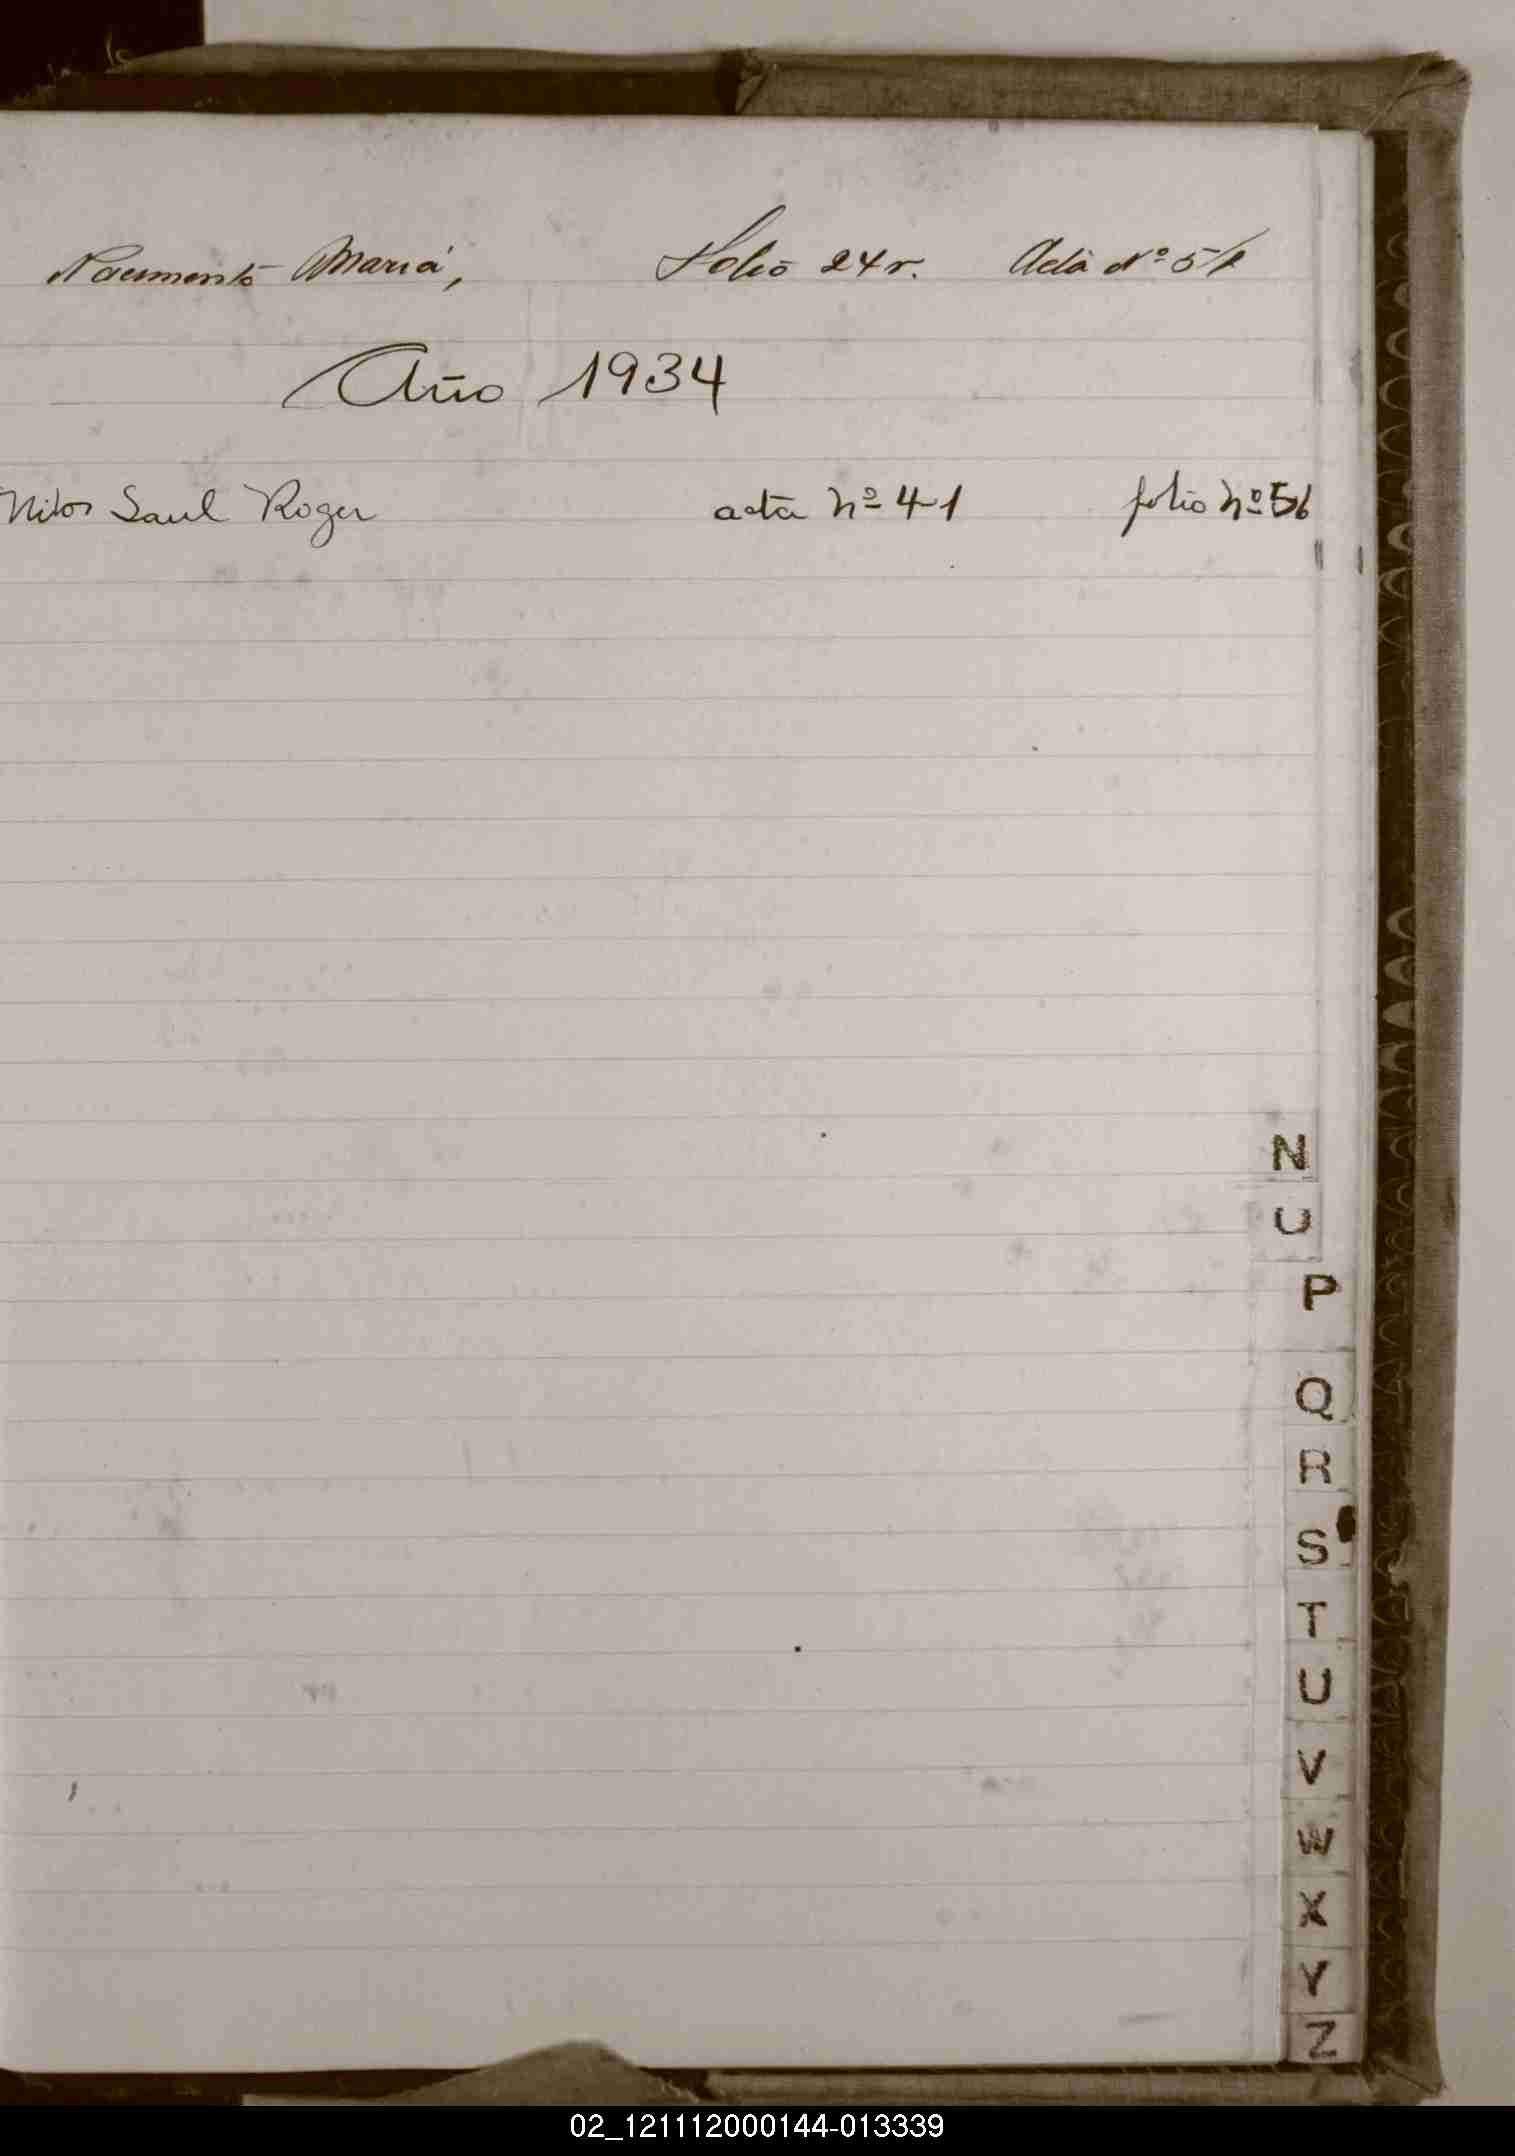 Nacimento Maria, Folio 24 r. Acta Nº 51
Año 1934
Saul Roger acta nº 41 folio nº 56
N
O
P
Q
R
S
T
U
V
W
X
Y
Z
02_121112000144-013339